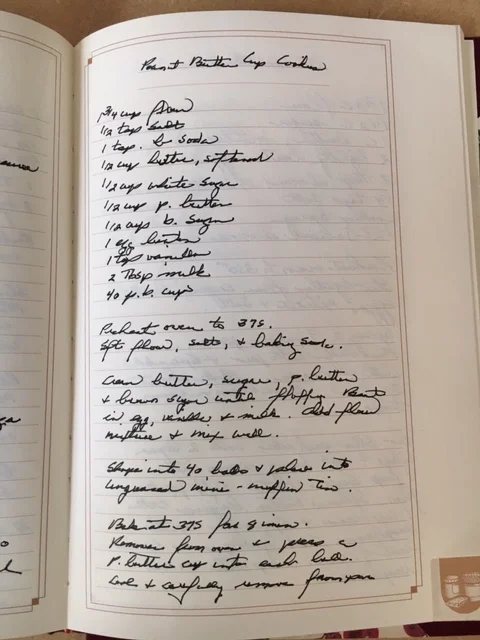 Peanut Butter Cup Cookies
1 3/4 cup flour
1/2 tsp salt
1 tsp. b soda
1/2 cup butter, softened
1/2 cup white sugar
1/2 cup p. butter
1/2 cup b. sugar
1 egg beaten
1 tsp vanilla
2 Tbsp milk
40 p.b. cups
Preheat oven to 375.
Sift flour, salt, & baking soda.
Cream butter, sugar, p. butter
& brown sugar until fluffy. Beat
in egg, vanilla & milk. Add flour
mixture & mix well.
Shape into 40 balls & place into
ungreased mini-muffin tin.
Bake at 375 for 8 min.
Remove from oven & press a
p. butter cup into each ball.
Cool & carefully remove from pan